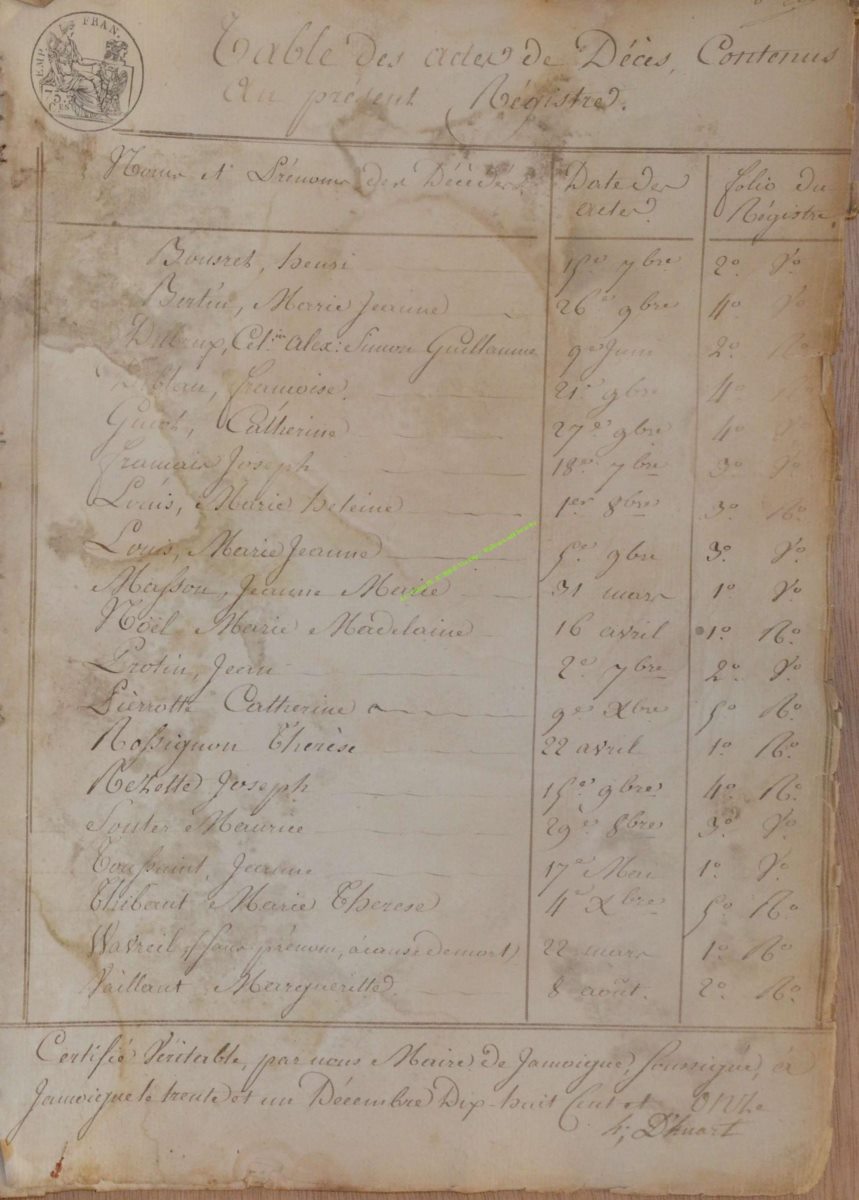 EMP. FRAN.
Table des actes de Décès, Contenus
au présent Régistre.
Noms et Prénoms des Décédés
Date des
actes.
folio du
Régistre
Bousret, henri 15e 7bre 2o Vo
Bertin, Marie Jeanne 26e 9bre 4o Vo
Alex: Simon Guillaume 9e Juin 2o Ro
françoise. 21e 9bre 4o Ro
Catherine 27e 9bre 4o Vo
francois Joseph 18e 7bre 3o Vo
Louis, Marie heleine 1er 8bre 3o Ro
Louis, Marie Jeanne 5e 9bre 3o Vo
Masson, Jeanne Marie 31 mars 1o Vo
Noël Marie Madelaine 16 avril 1o Ro
Protin, Jean 2e 7bre 2o Vo
Pierrotte Catherine 9e Xbre 5o Ro
Rossignon Therèse 22 avril 1o Ro
Rezette Joseph 15e 9bre 4o Ro
Souter Maurice 29e 8bre 3o Vo
Toussaint, Jeanne 17e Mai 1o Vo
Thibaut Marie Therese 4e Xbre 5o Ro
Wavreil, (sans prénom, à cause de mort) 22 mars 1o Ro
Vaillant Marguéritte 8 août. 2o Ro
Certifié Véritable, par nous Maire de Jamoigne, soussigné, à
Jamoigne le trente et un Décembre Dix-huit Cent et onze
h; D'huart